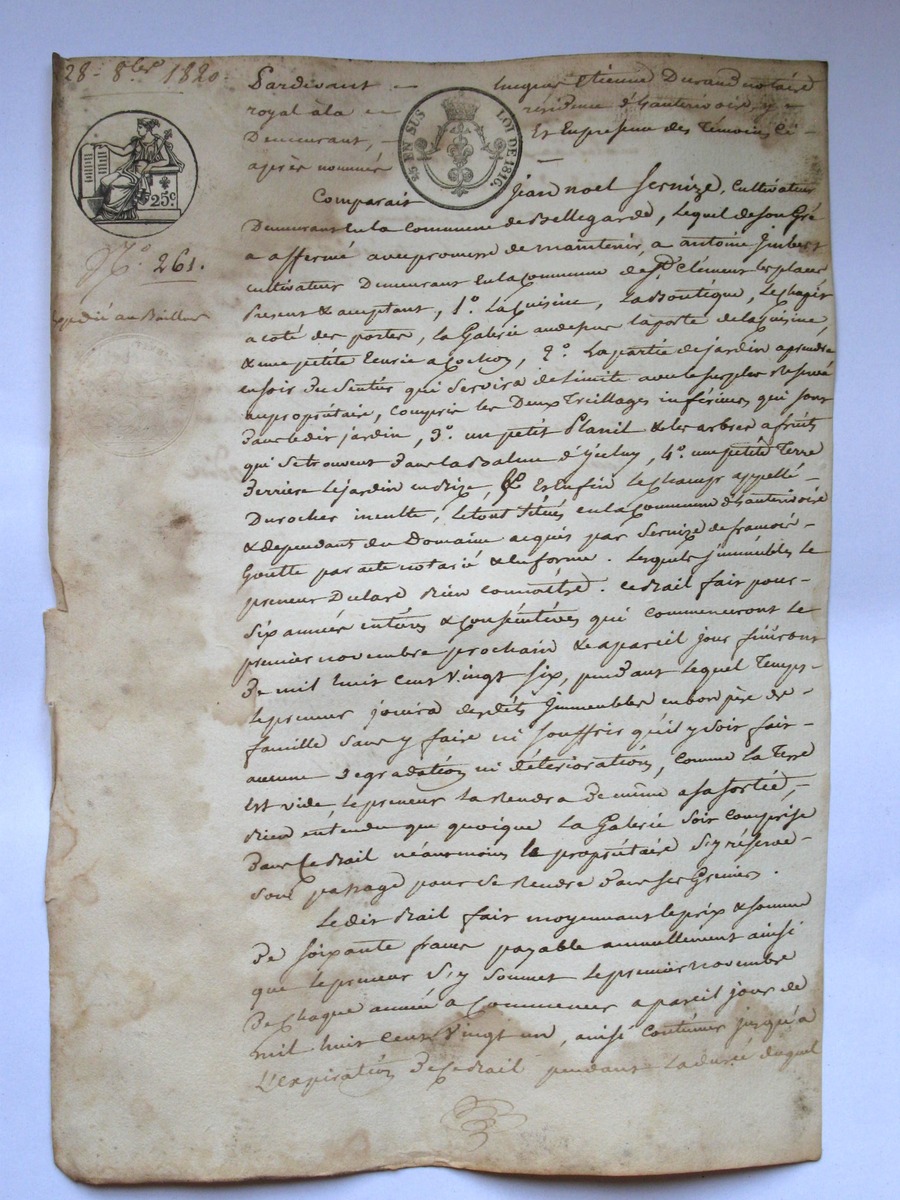 28 8bre 1820.
Pardevant hugues Etienne Durand notaire
royal à la résidence d'hauterivoire, y
Demeurant, Et En présence des Témoins Ci-
après nommés
EN SUS LOI DE 1816.
25 c.
N.º 261.
Expédié au Bailleur
Comparait Jean noel Sernize, Cultivateur
Demeurant En la Commune de Bellegarde, Lequel de Son Gré
a affermé avec promesse de maintenir, a antoine Imbert
cultivateur Demeurant En la Commune de St Clément les places
Présent & acceptant, 1.º La Cuisine, La Boutique, Le
a coté des portes, La Galerie au dessus la porte de la Cuisine,
& une petite Ecurie a Cochon, 2.º La partie de jardin a prendre
en soir du Sentier qui Servira de Limite avec le surplus Réservé
au propriétaire, Compris les Deux Treillages inférieurs qui sont
Dans le dit jardin, 3.º un petit & les arbres a fruits
qui Se trouvent Dans la, 4.º une petite Terre
Derrière Le jardin en Bize, & Enfin Le Champ appellé
Du rocher inculte, Le tout Situés en la Commune d'hauterivoire
& dépendant du Domaine acquis par Sernize de francois
Goutte par acte notarié & en forme. Lesquels jmmeubles Le
preneur Déclare Bien Connoitre. Ce Bail fait pour
Six années entières & Consécutives qui commenceront Le
premier novembre prochain & a pareil jour finiront
De mil huit Cent Vingt Six, pendant lequel Temps
Le preneur jouira desdits Jmmeubles en bon père de
famille Sans y faire ni Souffrir qu'il y Soit fait
aucune Dégradation ni détérioration, Comme la Terre
Est vide, Le preneur La Rendra De même a sa Sortie,
Bien entendu que quoique La Galerie Soit Comprise
Dans Ce Bail néanmoins le propriétaire S'y réserve
Son passage pour Se Rendre Dans Ses Greniers.
Le dit Bail fait moyennant le prix & somme
De Soixante francs payable annuellement ainsi
que Le preneur S'y Soumet Le premier novembre
De Chaque année a Commencer a pareil jour de
mil huit Cent Vingt un, ainsi Continuer jusqu'a
L'Expiration De Ce Bail pendant La durée duquel